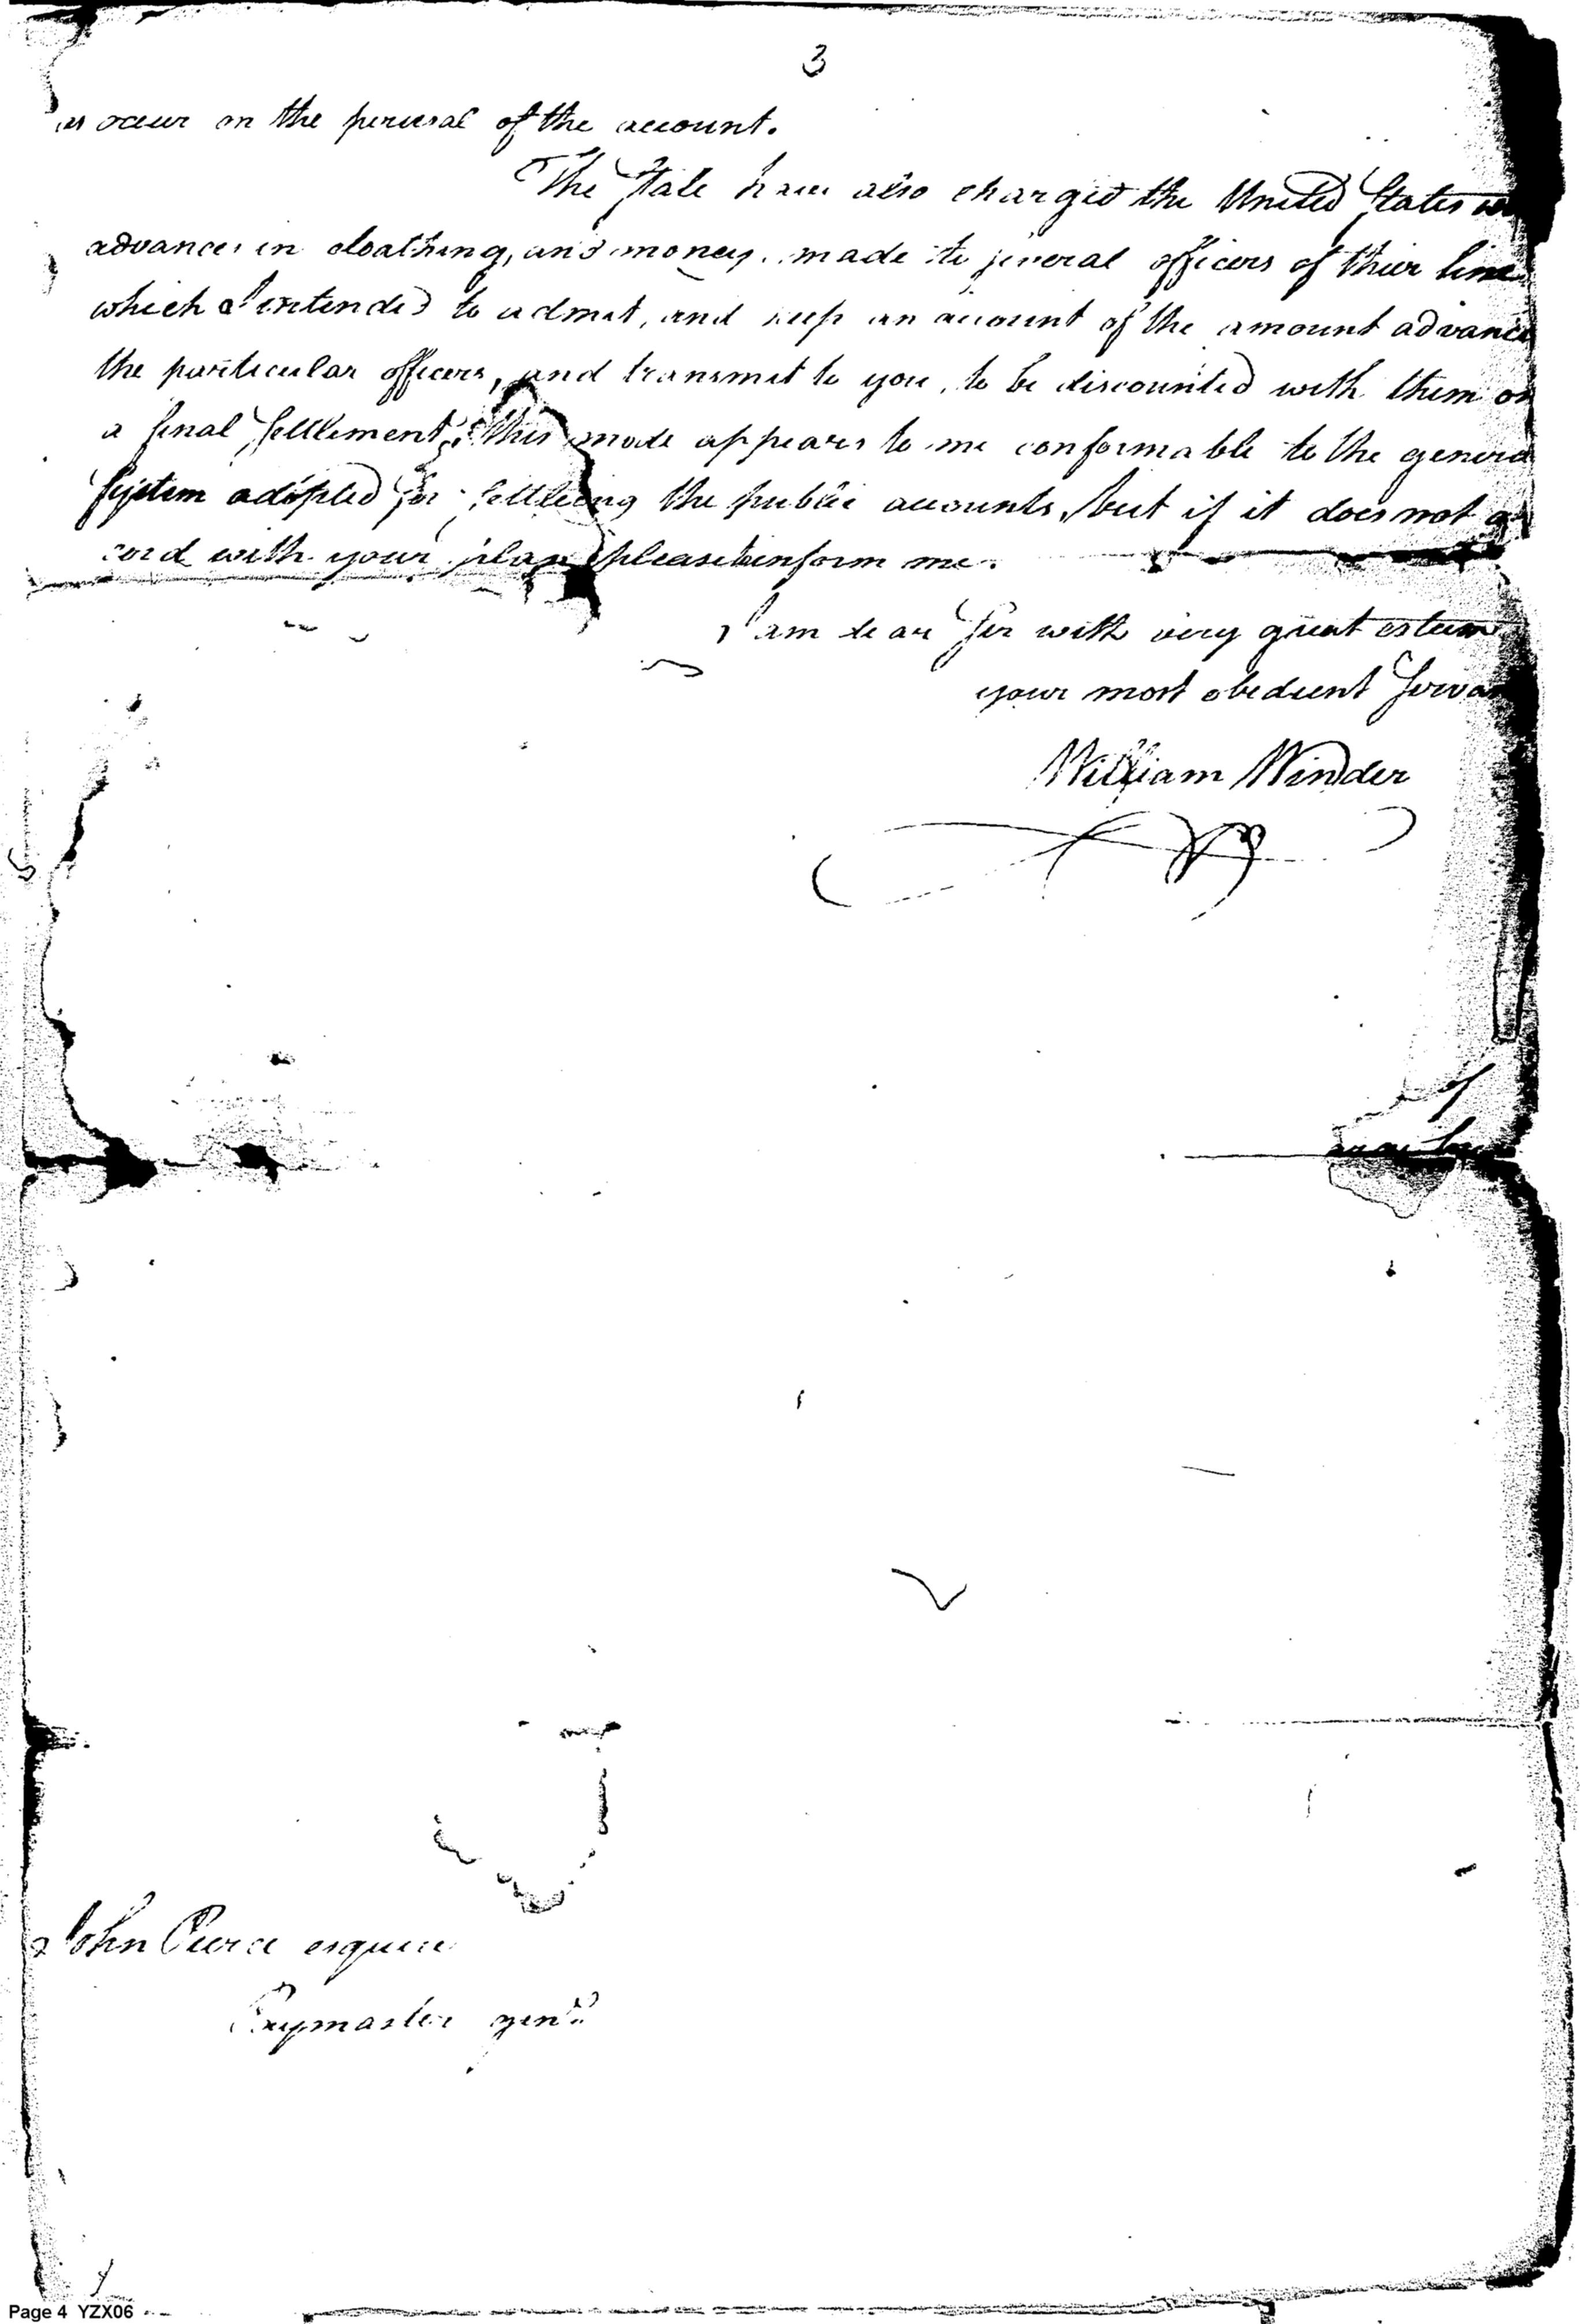 3
as occur on the perusal of the account.
The State have also charged the United States
advances in cloathing, and money, made to several officers of thier line
which I intended to admit, and keep an account of the amount advance
the particular officers, and transmit to you, to be discounted with them on
a final settlement, this mode appears to me conformable to the genera
system adopted for settleing the public accounts, but if it does not ac
cord with your plan please to inform me.
I am dear Sir with very great esteem
your most obedient Serva
William Winder
of
John Pierce esquire
Paymaster genl.
Page 4 YZX06